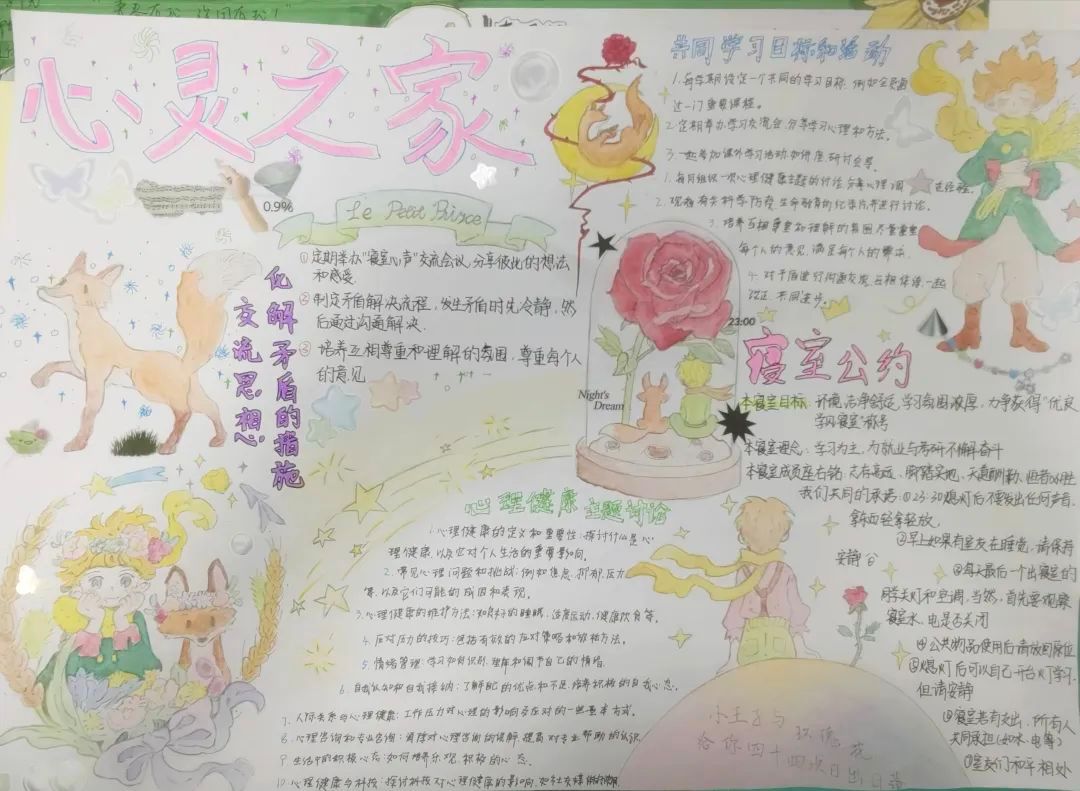 心灵之家
0.9%
Le Petit Prince
化解矛盾的措施
交流思想
①定期举办"寝室心声"交流会议,分享彼此的想法
和感受
②制定矛盾解决流程,发生矛盾时先冷静,然
后通过沟通解决
③培养互相尊重和理解的氛围,尊重每个人
的意见
共同学习目标和活动
1.每学期设定一个共同的学习目标,例如全员通
过一门重要课程。
2.定期举办学习交流会,分享学习心理和方法。
3.一起参加课外学习活动,如讲座,研讨会等。
1.每月组织一次心理健康主题的讨论,分享心理调
2.观看有关科学防疫,生命教育的纪录片并进行讨论。
3.培养互相尊重和理解的氛围,尽管重要
每个人的意见,满足每个人的需求
4.对于盾进行沟通交流,互相体谅,一起
改正,不同进步。
23:00
Night's
Dream
寝室公约
本寝室目标:环境洁净舒适,学习氛围浓厚,力争获得"优良
学风寝室"称号
本寝室理念:学习为主,为就业与考研不懈奋斗
本寝室成员座右铭:志存高远,脚踏实地,天道酬勤
我们共同的承诺:①23:30熄灯后不要发出任何声音,
拿东西轻拿轻放.
②早上如果有室友在睡觉,请保持
安静
③每天最后一个出寝室的
同学关灯和空调,当然,首先要观察
寝室水、电是否关闭
④公共物品使用后请放回原位
⑤熄灯后可以自己开台灯学习,
但请安静
⑥寝室若有支出,所有人
共同承担(如水、电等)
⑦室友们和平相处
心理健康主题讨论
1.心理健康的定义和重要性:探讨什么是心
理健康,以及它对个人生活的重要影响.
2.常见心理问题和挑战:例如焦虑,抑郁,压力
等,以及它们可能的成因和表现.
3.心理健康的维护方法:如良好的睡眠,适度运动,健康饮食等.
4.应对压力的技巧:包括有效的应对策略和放松方法。
5.情绪管理:学习如何识别,理解和调节自己的情绪.
6.自我认知和自我接纳:了解自己的优点和不足,培养积极的自我心态.
7.人际关系与心理健康:工作压力对心理的影响及应对的一些基本方式.
8.心理咨询和专业咨询:消除对心理咨询的误解,提高对专业帮助的认识
9.生活中的积极心态:如何培养乐观,积极的心态.
10.心理健康与科技:探讨科技对心理健康的影响,如社交媒体
小王子与玫瑰花
给你四十四次日出日落